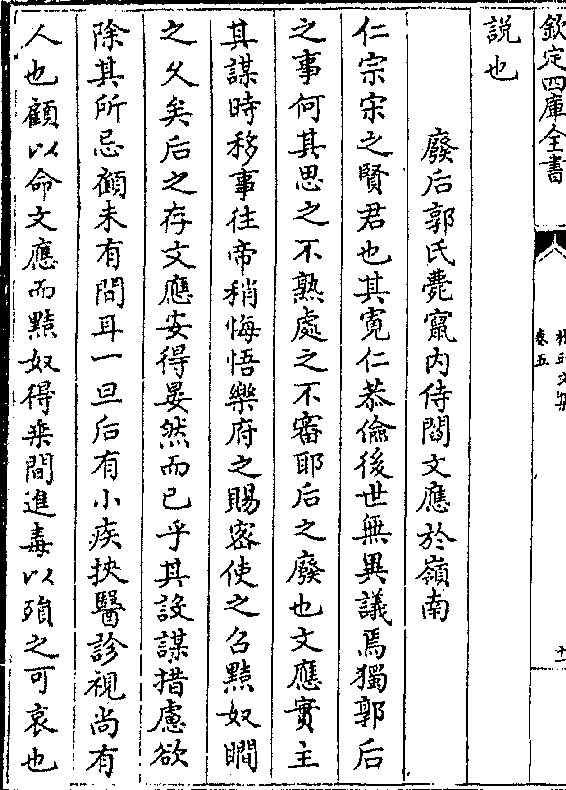 欽定四庫全書
卷五
十一
説也
廢后郭氏薨竄内侍閻文應於嶺南
仁宗宋之賢君也其寛仁恭儉後世無異議焉獨郭后
之事何其思之不熟處之不審耶后之廢也文應實主
其謀時移事往帝稍悔悟樂府之賜密使之召黠奴瞷
之乆矣后之存文應安得晏然而已乎其設謀措慮欲
除其所忌顧未有間耳一旦后有小疾挾醫診視尚有
人也顧以命文應而黠奴得乗間進毒以殞之可哀也